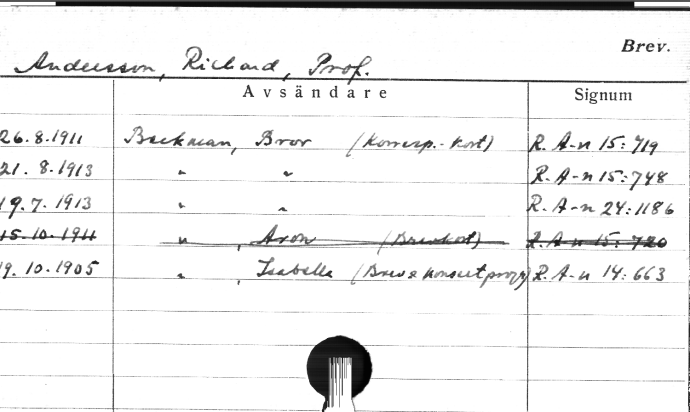 Brev.
Andersson, Richard, Prof.
Avsändare Signum
26.8.1911 Backman, Bror (Korresp.-kort) R. A-n 15:719
21. 8.1913 " " R. A-n 15:748
19.7. 1913 " " R. A-n 24:1186
15.10.1911 " , Aron (Brevkort) R. A-n 15: 720
19. 10.1905 " , Isabella (Brev & konsertprogr) R. A-n 14:663